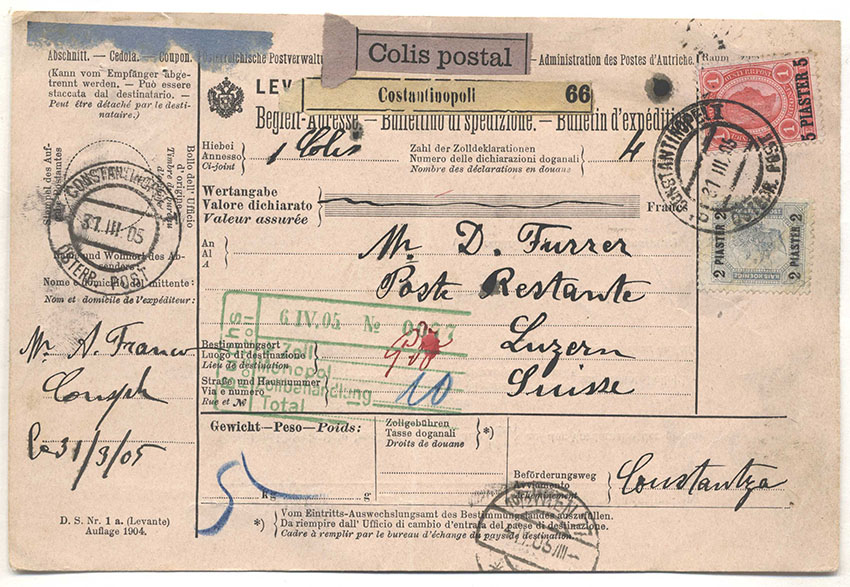 Colis postal
Abschnitt. — Cedola. — Coupon.
Österreichische Postverwaltung
Administration des Postes d'Autriche.
(Raum
(Kann vom Empfänger abge-
trennt werden. — Può essere
staccata dal destinatario. —
Peut être détaché par le desti-
nataire.)
LEV
Constantinopoli 66
Begleit-Adresse. — Bullettino di spedizione. — Bulletin d'expédition
Hiebei
Annesso
Ci-joint
1 Colis
Zahl der Zolldeklarationen
Numero delle dichiarazioni doganali
Nombre des déclarations en douane
4
Wertangabe
Valore dichiarato
Valeur assurée
Francs
1 1
5 PIASTER 5
CONSTANTINOPEL I
31 III 05
2 PIASTER 2
2 PIASTER 2
Stempel des Auf-
Bollo dell' Ufficio
d'origine
Timbre du bureau
CONSTANTINOPEL
31.III.05
ÖSTERR. POST
und Wohnort des Ab-
senders
Nome e domicilio del mittente:
Nom et domicile de l'expéditeur:
Mr A. Franco
Conople
Le 31/3/05
An
Al
A
Mr D. Furrer
Poste Restante
Luzern
Suisse
6 IV. 05 No
Zoll
Monopol
Zollbehandlung
Total
Bestimmungsort
Luogo di destinazione
Lieu de destination
Straße und Hausnummer
Via e numero
Rue et No
10
Gewicht—Peso—Poids:
5
kg g
Zollgebühren
Tasse doganali
Droits de douane
*)
Beförderungsweg
Avviamento
Acheminement
Constantza
*)
Vom Eintritts-Auswechslungsamt des Bestimmungslandes auszufüllen.
Da riempire dall' Ufficio di cambio d'entrata del paese di destinazione.
Cadre à remplir par le bureau d'échange du pays de destination.
D. S. Nr. 1 a. (Levante)
Auflage 1904.